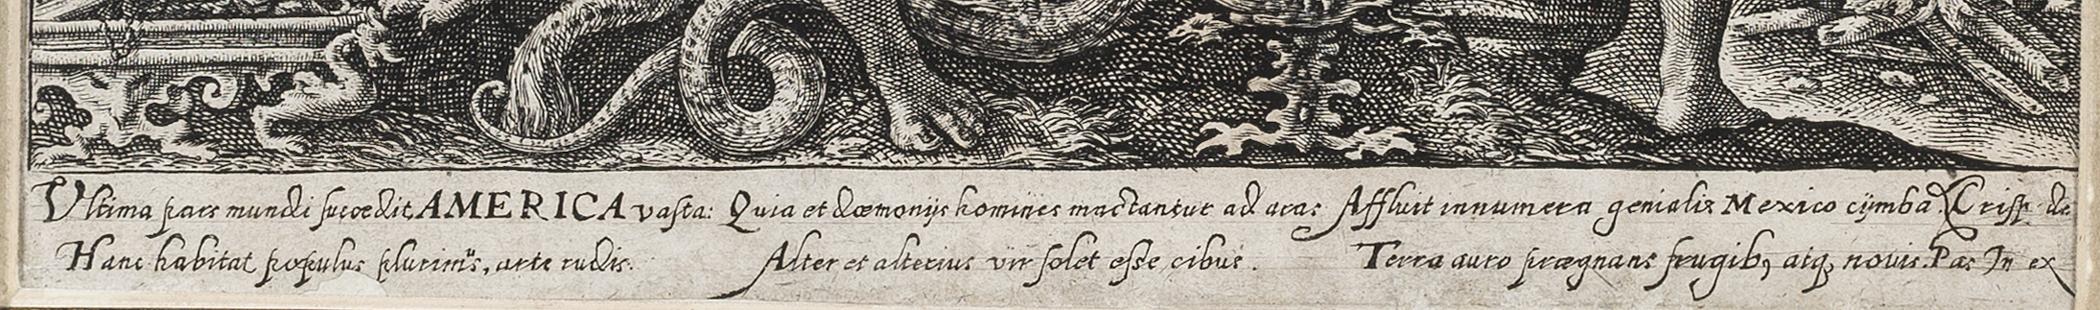 Ultima pars mundi succedit AMERICA vasta:
Hanc habitat populus plurimus, arte rudis.
Quia et dæmonijs homines mactantur ad aras
Alter et alterius vir solet esse cibus.
Affluit innumera genialis Mexico cijmba.
Terra auro prægnans frugib, atq, novis.
Crisp. de
Pas In ex